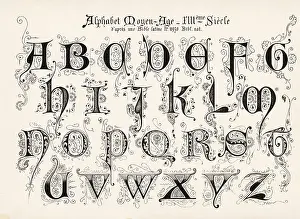 Alphabet Moyen-Age _ XIIIème Siècle
d'après une Bible latine
A B C D E F G
H I J K L M
N O P Q R S T
U V W X Y Z